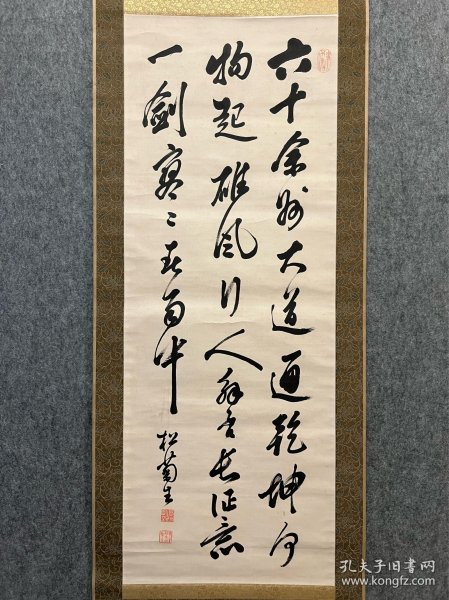 六十余州大道通乾坤何
物起雄風行人解否長征意
一劍寒々春雨中
松菊生
孔夫子旧书网
www.kongfz.com